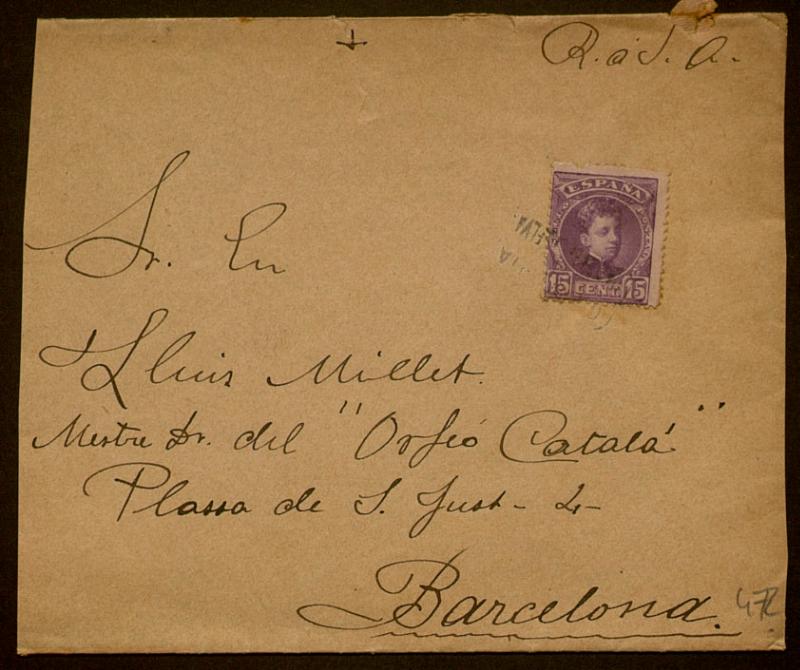 R. a S. A.
ESPAÑA
15 CENT. 15
Sr. En
Lluis Millet.
Mestre Dr. del "Orfeó Catalá"
Plassa de S. Just - 4 -
Barcelona.
472